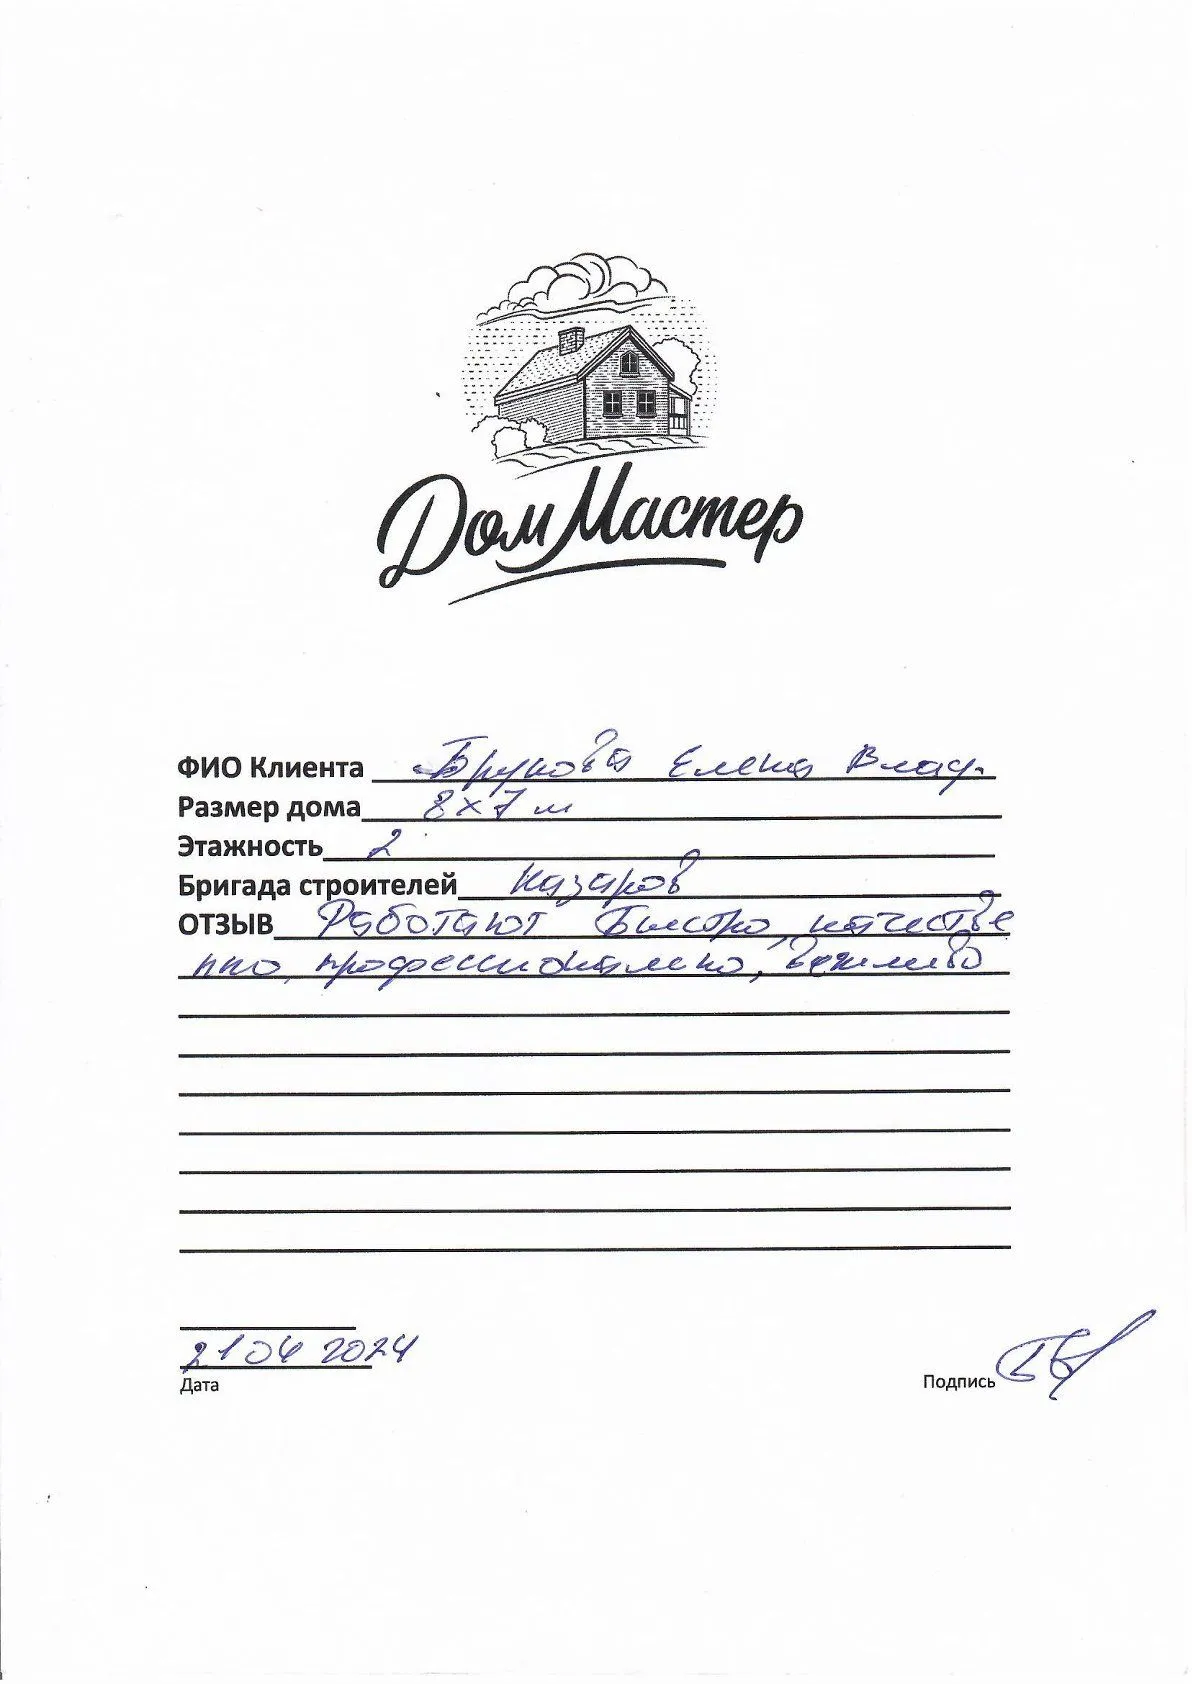 ДомМастер
ФИО Клиента Брунова Елена Влад.
Размер дома 8х7 м
Этажность 2
Бригада строителей Назаров
ОТЗЫВ Работают быстро, качестве
нно, профессионально, вежливо
21 04 2024
Дата
Подпись